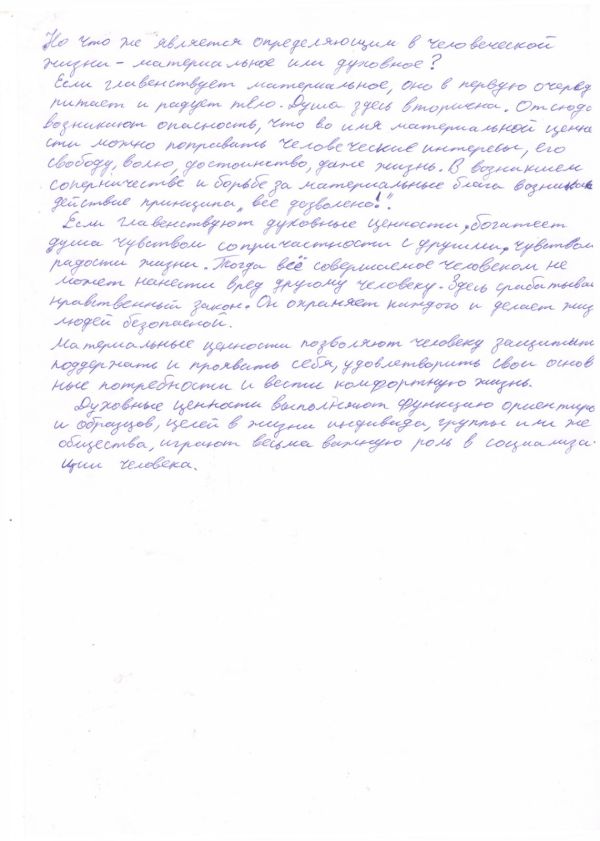 Но что же является определяющим в человеческой
жизни – материальное или духовное?
Если главенствует материальное, оно в первую очеред
питает и радует тело. Душа здесь вторична. Отсюда
возникают опасность, что во имя материальной ценно
сти можно поправить человеческие интересы, его
свободу, волю, достоинство, даже жизнь. В возникшем
соперничестве и борьбе за материальные блага
действие принципа „всё дозволено!".
Если главенствуют духовные ценности, богатеет
душа чувством сопричастности с другими, чувством
радости жизни. Тогда всё совершаемое человеком не
может нанести вред другому человеку. Здесь срабатывае
нравственный закон. Он охраняет каждого и делает жиз
людей безопасной.
Материальные ценности позволяют человеку защищать
поддержать и проявать себя, удовлетворить свои основ
ные потребности и вести комфортную жизнь.
Духовные ценности выполняют функцию ориентиро
и образцов, целей в жизни индивида, группы или же
общества, играют весьма важную роль в социализа-
ции человека.